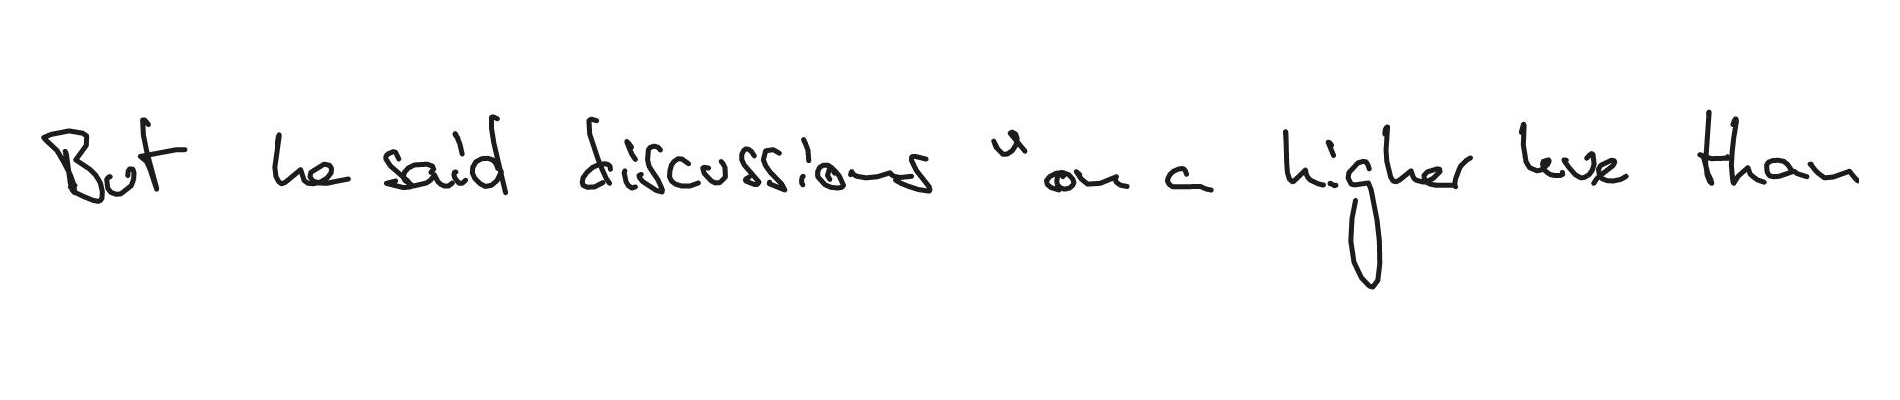 But he said discussions "on a higher leve than